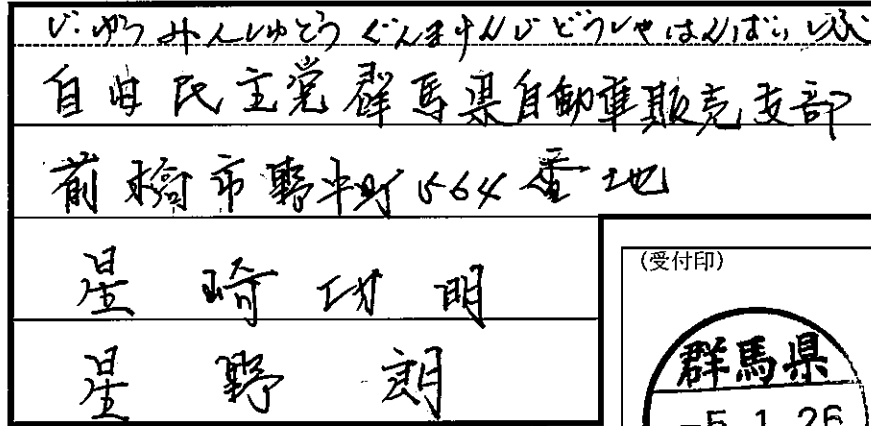 じゆうみんしゅとう ぐんまけんじどうしゃはんばいしぶ
自由民主党群馬県自動車販売支部
前橋市野中町564番地
星崎功明
星野朗
(受付印)
群馬県
-5.1.26